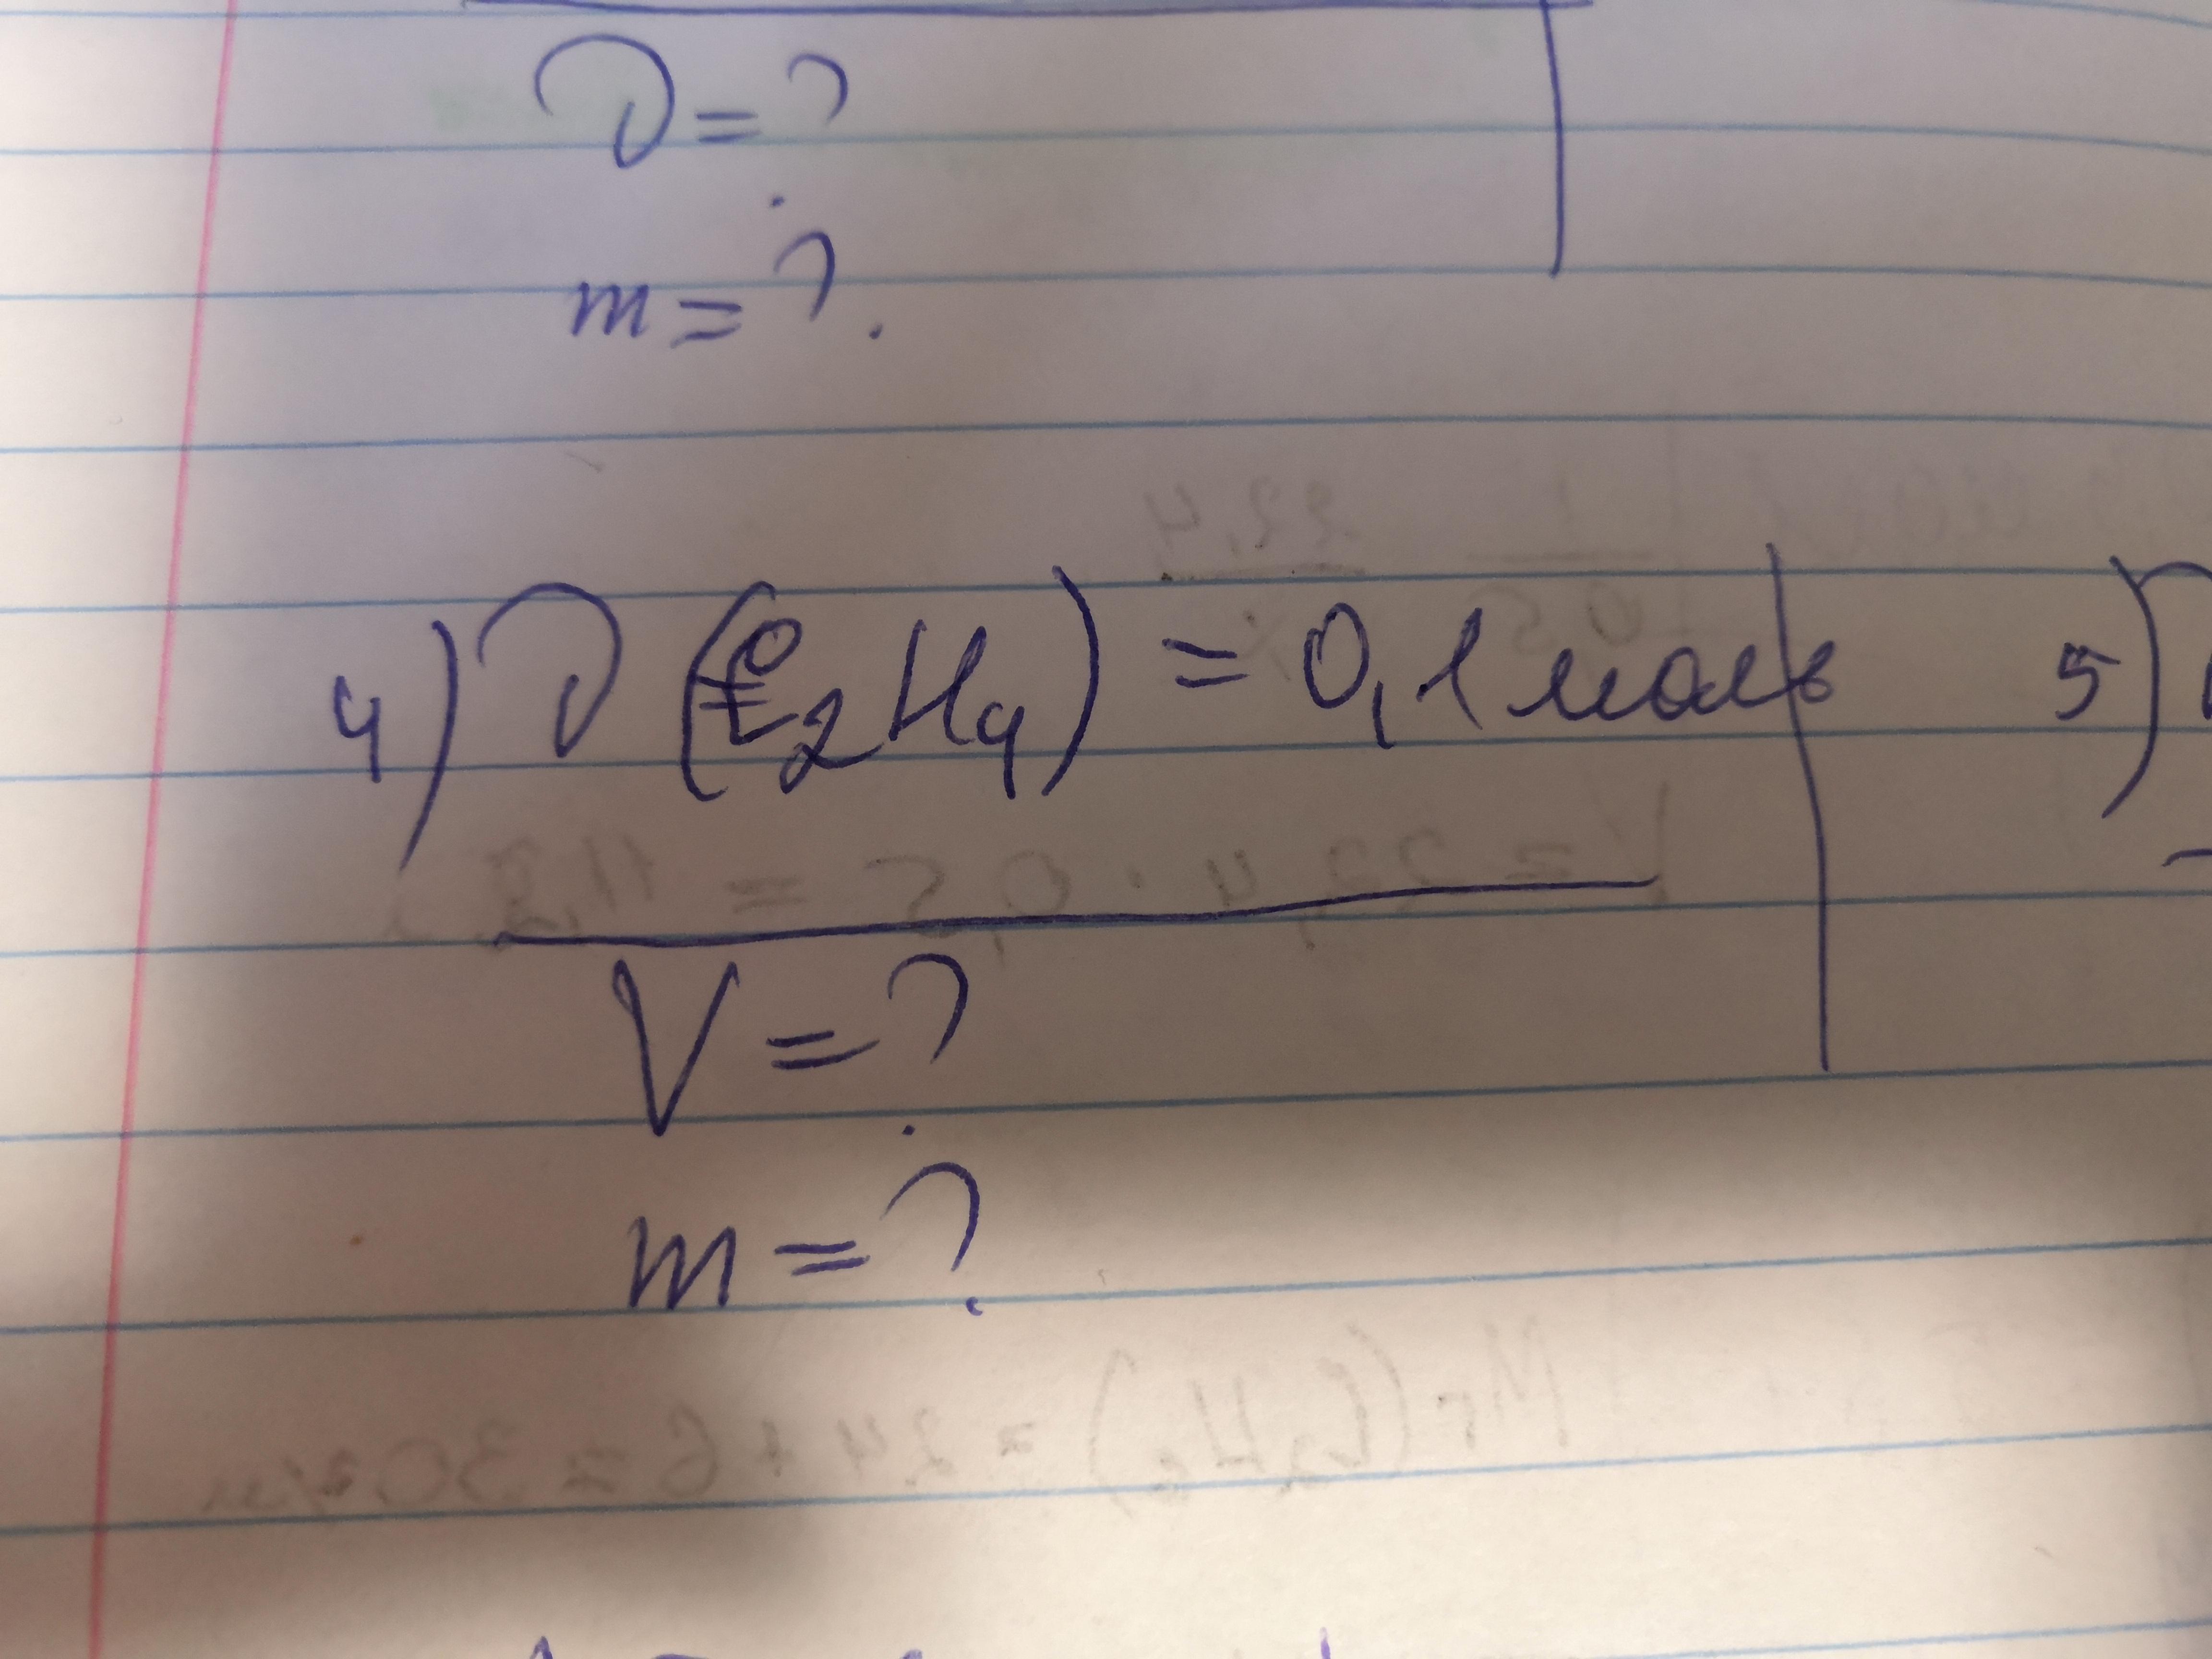 ν = ?
m = ?
4) ν (C₂H₄) = 0,1 моль
5)
V = ?
m = ?